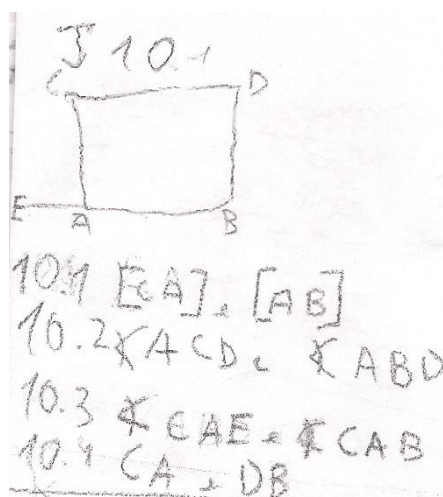 J 10.1
C D
E A B
10.1 [EA] e [AB]
10.2 ∢ACD e ∢ABD
10.3 ∢CAE e ∢CAB
10.4 CA e DB